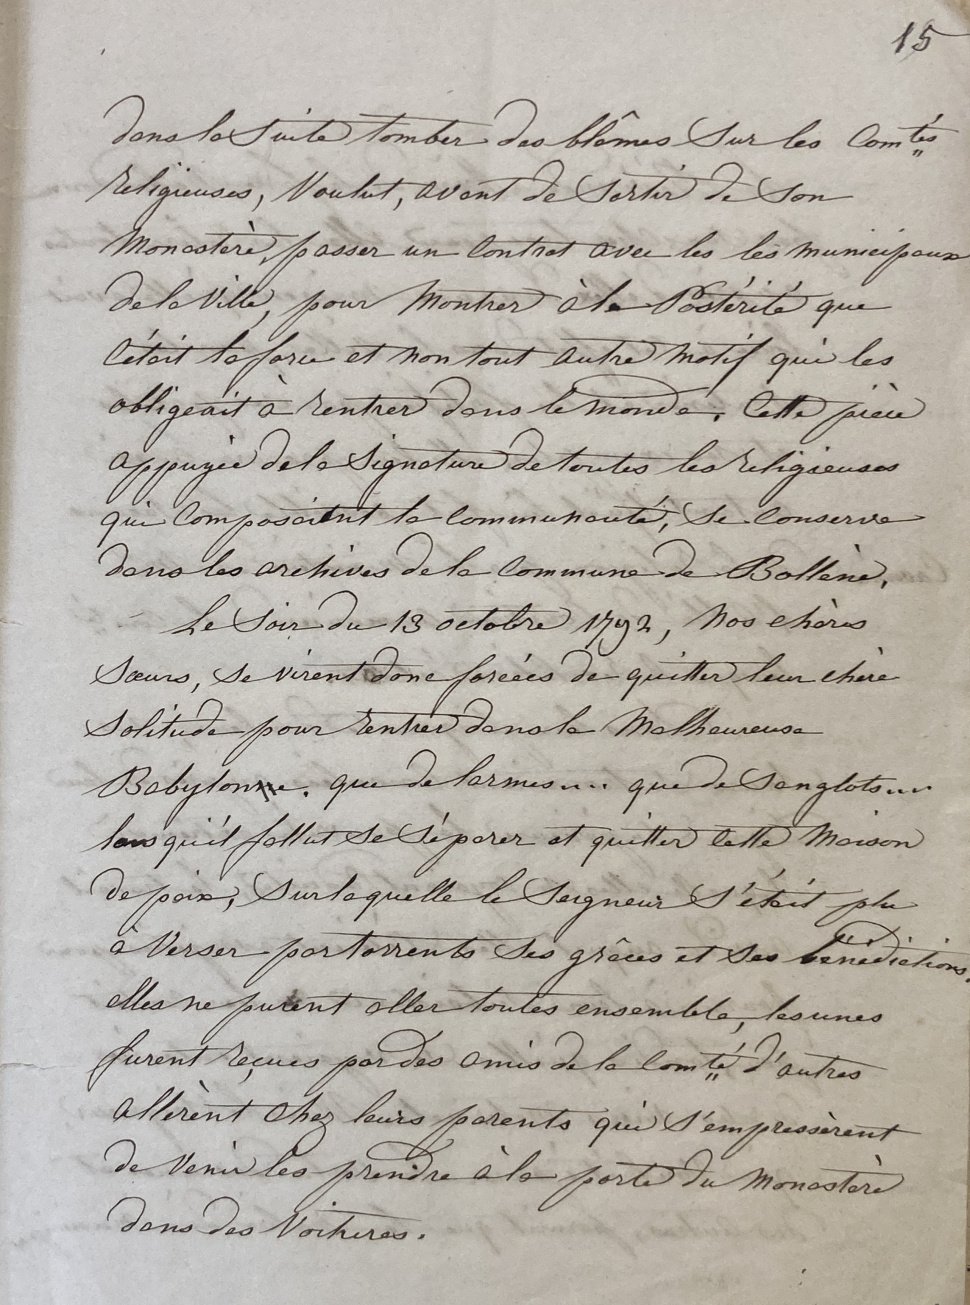 15
dans la suite tomber des blâmes sur les Comtés
religieuses, Voulut, avant de Sortir de Son
Monastère, passer un Contrat avec les les municipaux
de la Ville, pour Montrer à la Postérité que
C'était la force et non tout autre Motif qui les
obligeait à rentrer dans le monde. Cette pièce
appuyée de la Signature de toutes les religieuses
qui Composaient la Communauté, Se Conserve
dans les archives de la Commune de Bollène.
Le Soir du 13 octobre 1792, Nos chères
Sœurs, se virent donc forcées de quitter leur chère
Solitude pour rentrer dans la Malheureuse
Babylonne. que de larmes.... que de Sanglots....
lorsqu'il fallut se Séparer et quitter Cette Maison
de paix, Sur laquelle le Seigneur S'était plu
à Verser par torrents Ses grâces et Ses bénédictions.
elles ne purent aller toutes ensemble, les unes
furent reçues par des amis de la Comté d'autres
allèrent Chez leurs parents qui S'empressèrent
de Venir les prendre à la porte du Monastère
dans des Voitures.